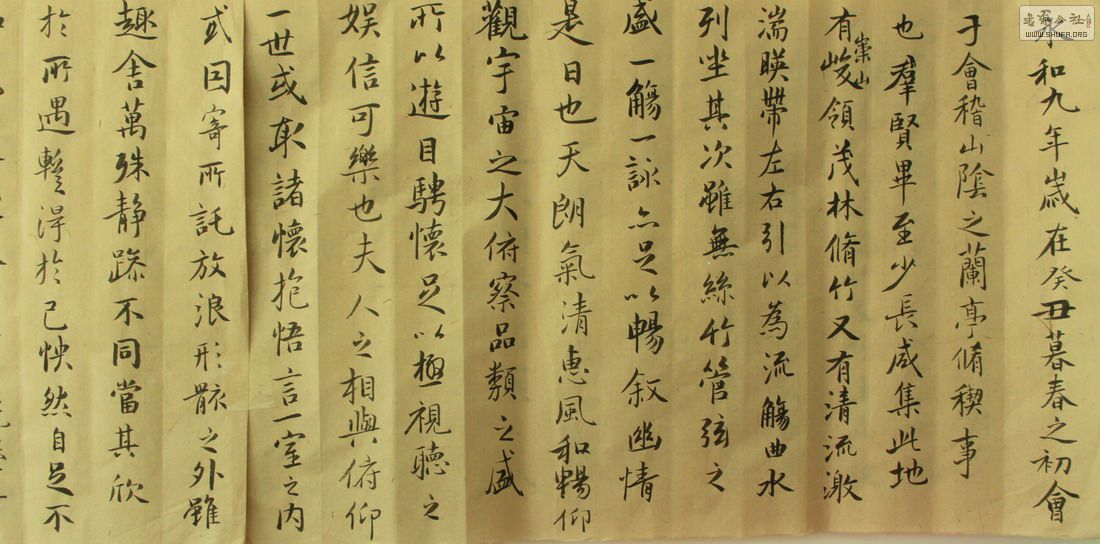 永和九年歲在癸丑暮春之初會
于會稽山陰之蘭亭脩稧事
也羣賢畢至少長咸集此地
有崇山峻領茂林脩竹又有清流激
湍暎帶左右引以為流觴曲水
列坐其次雖無絲竹管弦之
盛一觴一詠亦足以暢敘幽情
是日也天朗氣清惠風和暢仰
觀宇宙之大俯察品類之盛
所以遊目騁懷足以極視聽之
娛信可樂也夫人之相與俯仰
一世或取諸懷抱悟言一室之內
或因寄所託放浪形骸之外雖
趣舍萬殊靜躁不同當其欣
於所遇暫得於己怏然自足不
WWW.SHUFA.ORG